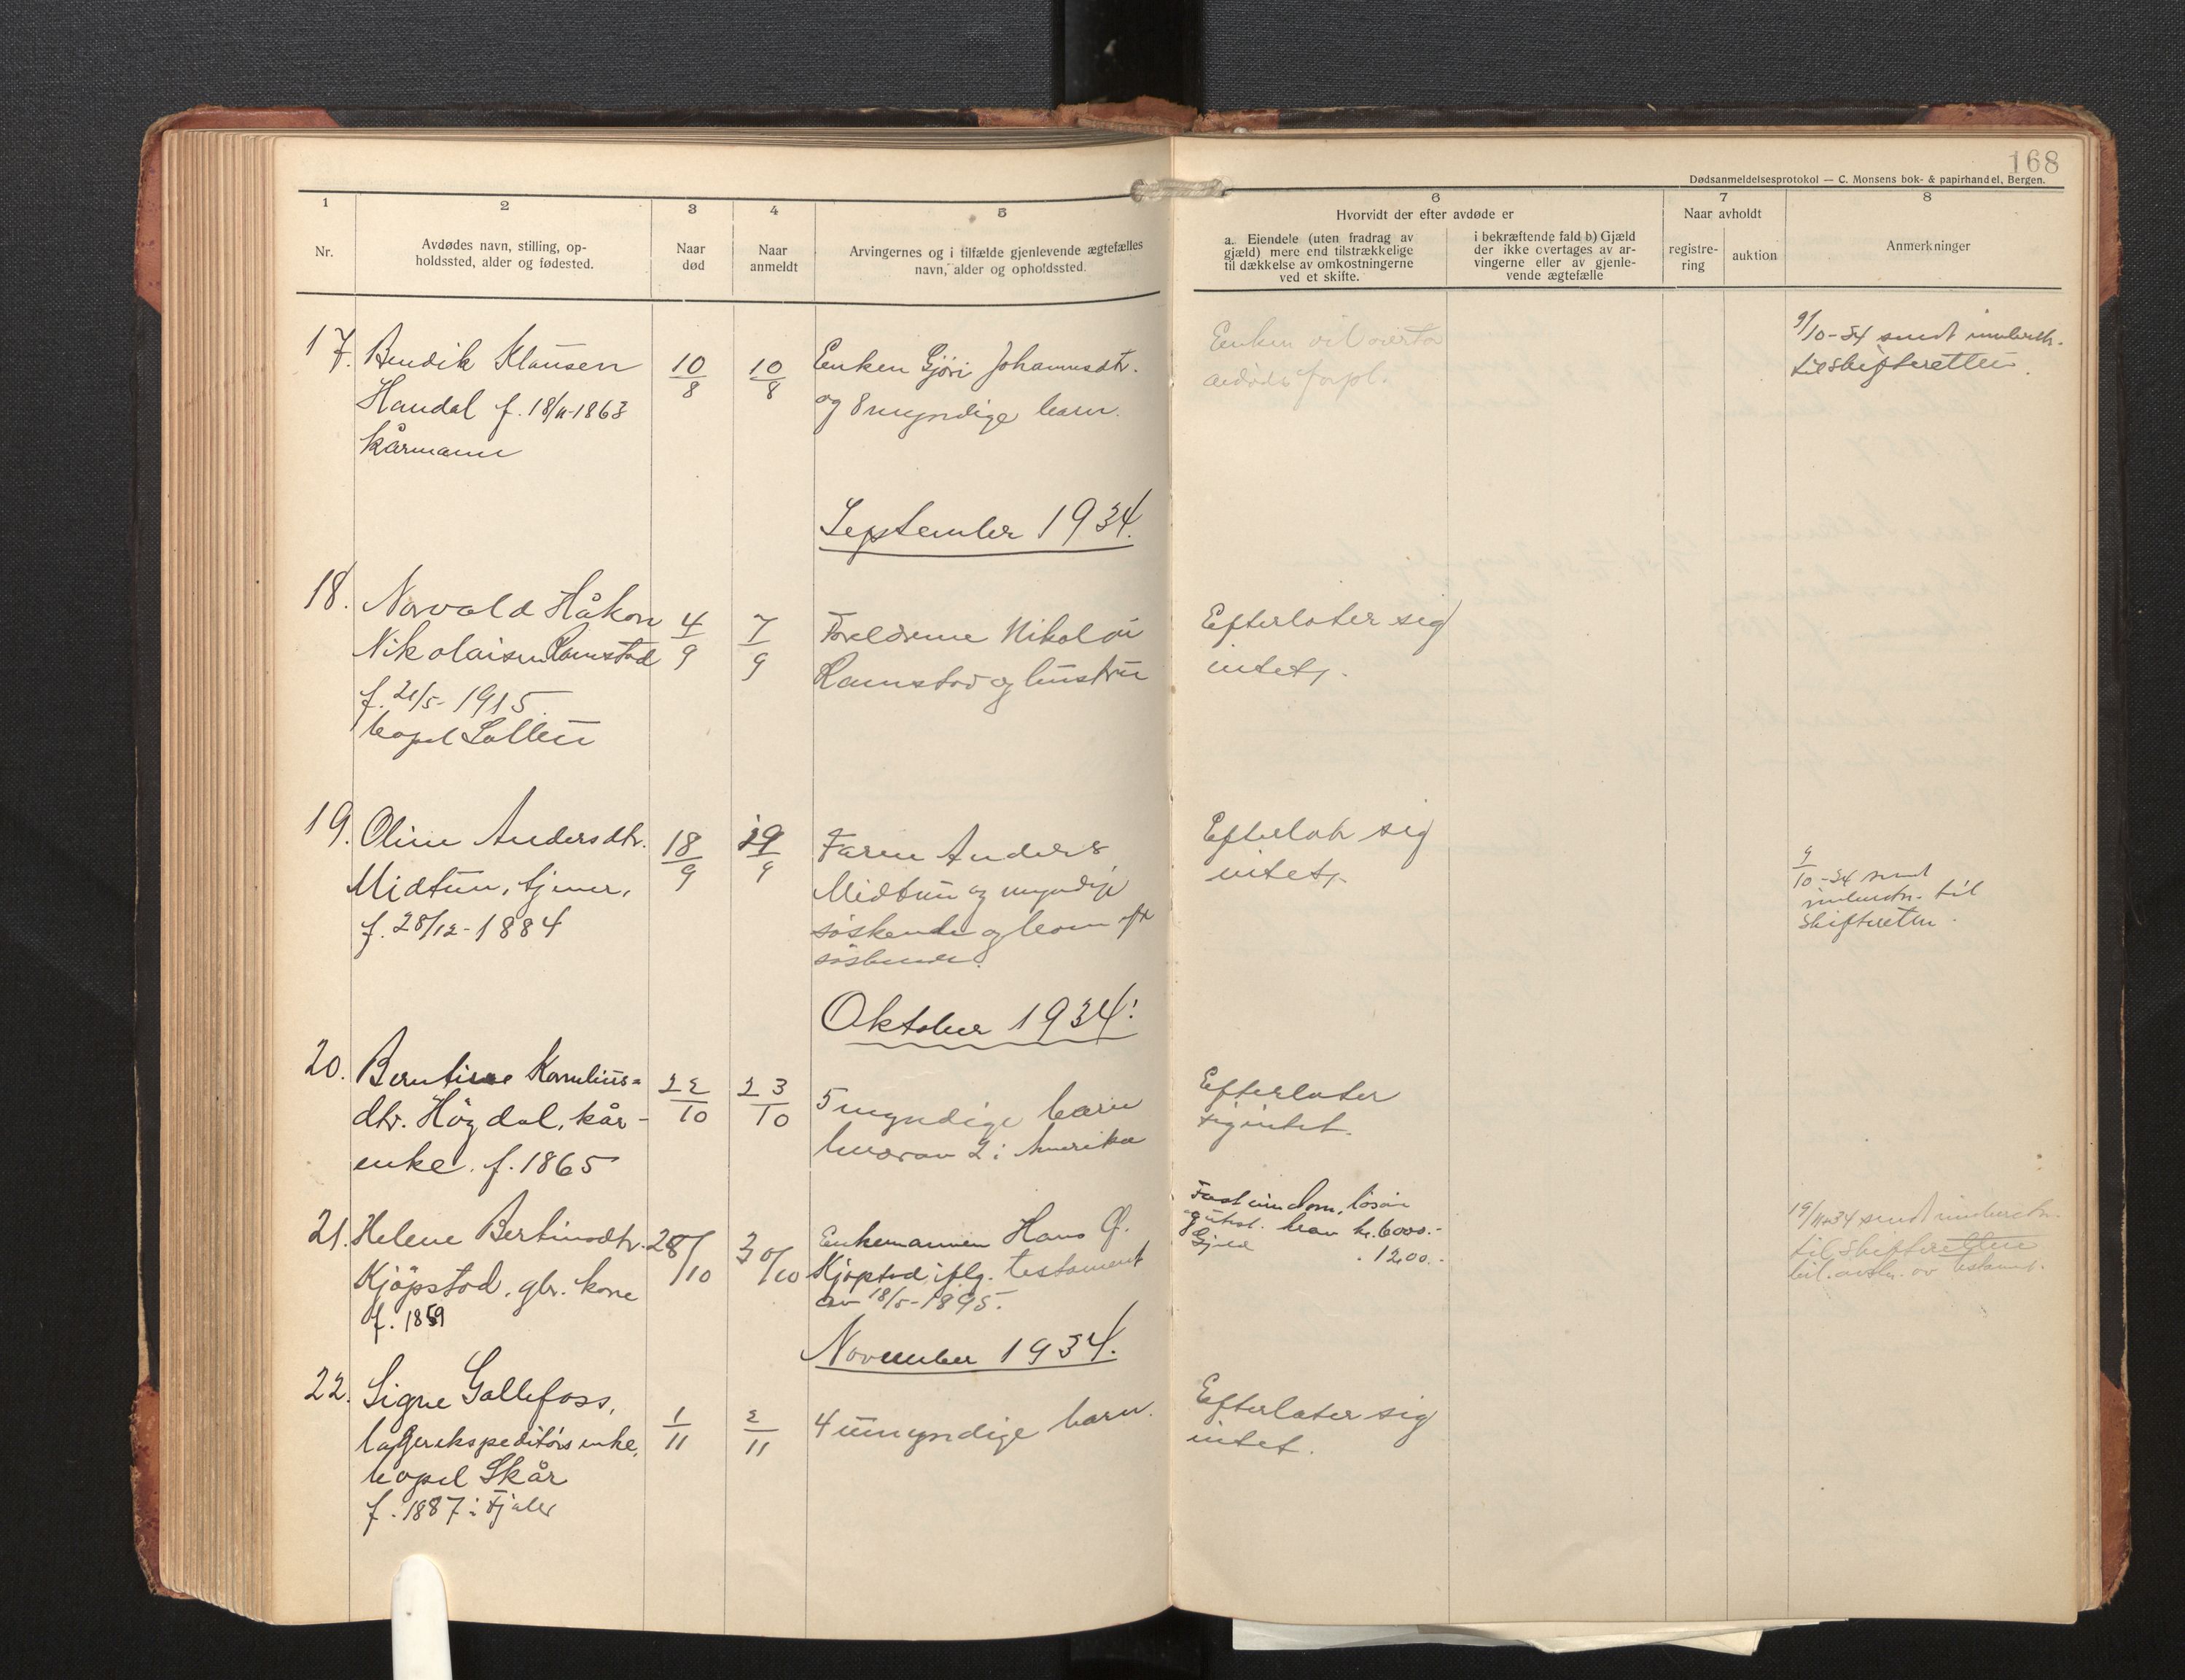 168
Dødsanmeldelsesprotokol — C. Monsens bok- & papirhandel, Bergen.
1
2
3
4
5
6
7
8
Nr.
Avdødes navn, stilling, op-
holdssted, alder og fødested.
Naar
død
Naar
anmeldt
Arvingernes og i tilfælde gjenlevende ægtefælles
navn, alder og opholdssted.
Hvorvidt der efter avdøde er
a. Eiendele (uten fradrag av
gjæld) mere end tilstrækkelige
til dækkelse av omkostningerne
ved et skifte.
i bekræftende fald b) Gjæld
der ikke overtages av ar-
vingerne eller av gjenle-
vende ægtefælle
Naar avholdt
registre-
ring
auktion
Anmerkninger
17. Bendik Klausen
Handal f. 18/11-1863
kårmann
10/8
10/8
Enken Gjöri Johannesdtr.
og 8 myndige barn.
Enken vil overta
avdødes forpl.
9/10-34 sendt innberetn.
til skifteretten.
September 1934.
18. Norvald Håkon
Nikolaisen Ramstad
f. 21/5-1915
4/9
7/9
Foreldrene Nikolai
Ramstad og hustru
Efterlater sig
intet.
19. Oline Andersdtr.
Midtun, tjener,
f. 28/12-1884
18/9
19/9
Faren Anders
Midtun og myndige
søskende og barn eft
søskende.
Efterlot sig
intet.
9/10-34 sendt
innberetn. til
skifteretten.
Oktober 1934:
20. Berntine Kornelius-
dtr. Högdal, kår-
enke. f. 1865
22/10
23/10
5 myndige barn
hvorav 2 i Amerika
Efterlater
sig intet.
21. Helene Bertinsdtr.
Kjöpstad, gbr. kone
f. 1859
28/10
30/10
Enkemannen Hans G.
Kjöpstad, iflg. testament
av 18/5-1895.
Fast eiendom, løsøre
og utest. krav kr. 6000.-
Gjeld " 1200.-
19/11-34 sendt innberetn.
til skifteretten
November 1934.
22. Signe Gallefoss,
lagerekspeditörs enke,
bopel Skår
f. 1887 i Fjaler
1/11
2/11
4 umyndige barn.
Efterlater sig
intet.